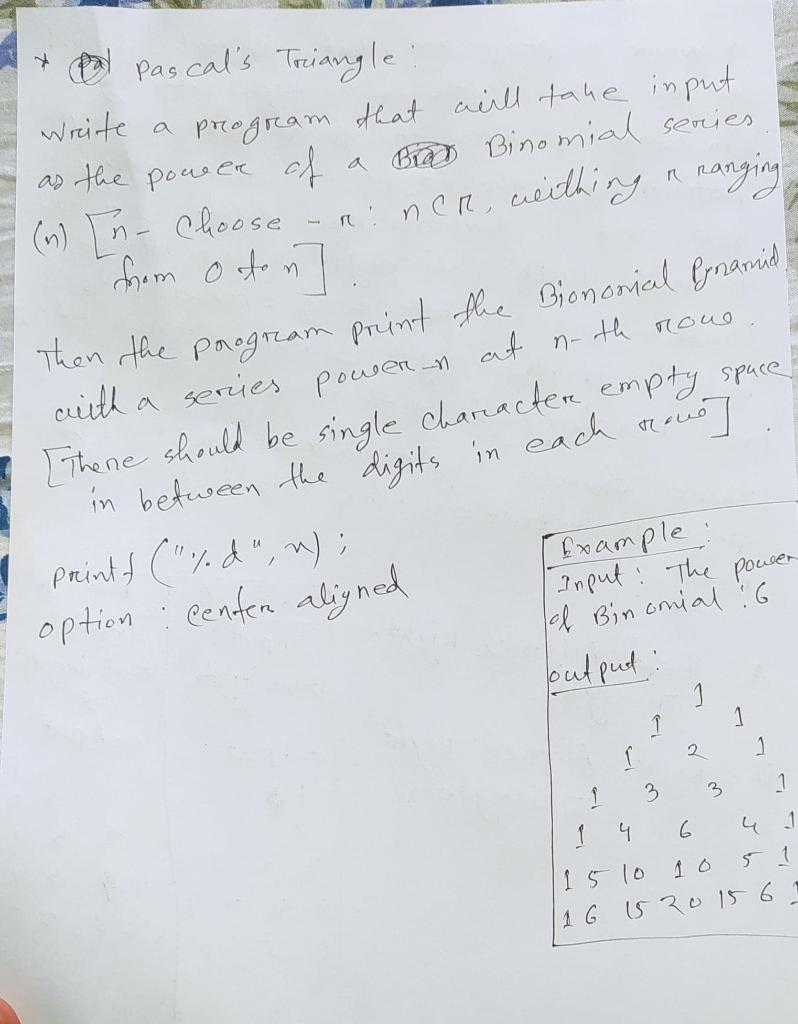 * Pascal's Triangle:
Write a program that will take input
as the power of a Binomial series
(n) [n - Choose - r: nCr, withing r ranging
from 0 to n].
Then the program print the Bionomial Pyramid
with a series power-n at n-th row.
[There should be single character empty space
in between the digits in each row].
printf ("%d", n);
option: center aligned
Example:
Input: The power
of Binomial: 6
output:
1
1 1
1 2 1
1 3 3 1
1 4 6 4 1
1 5 10 10 5 1
1 6 15 20 15 6 1